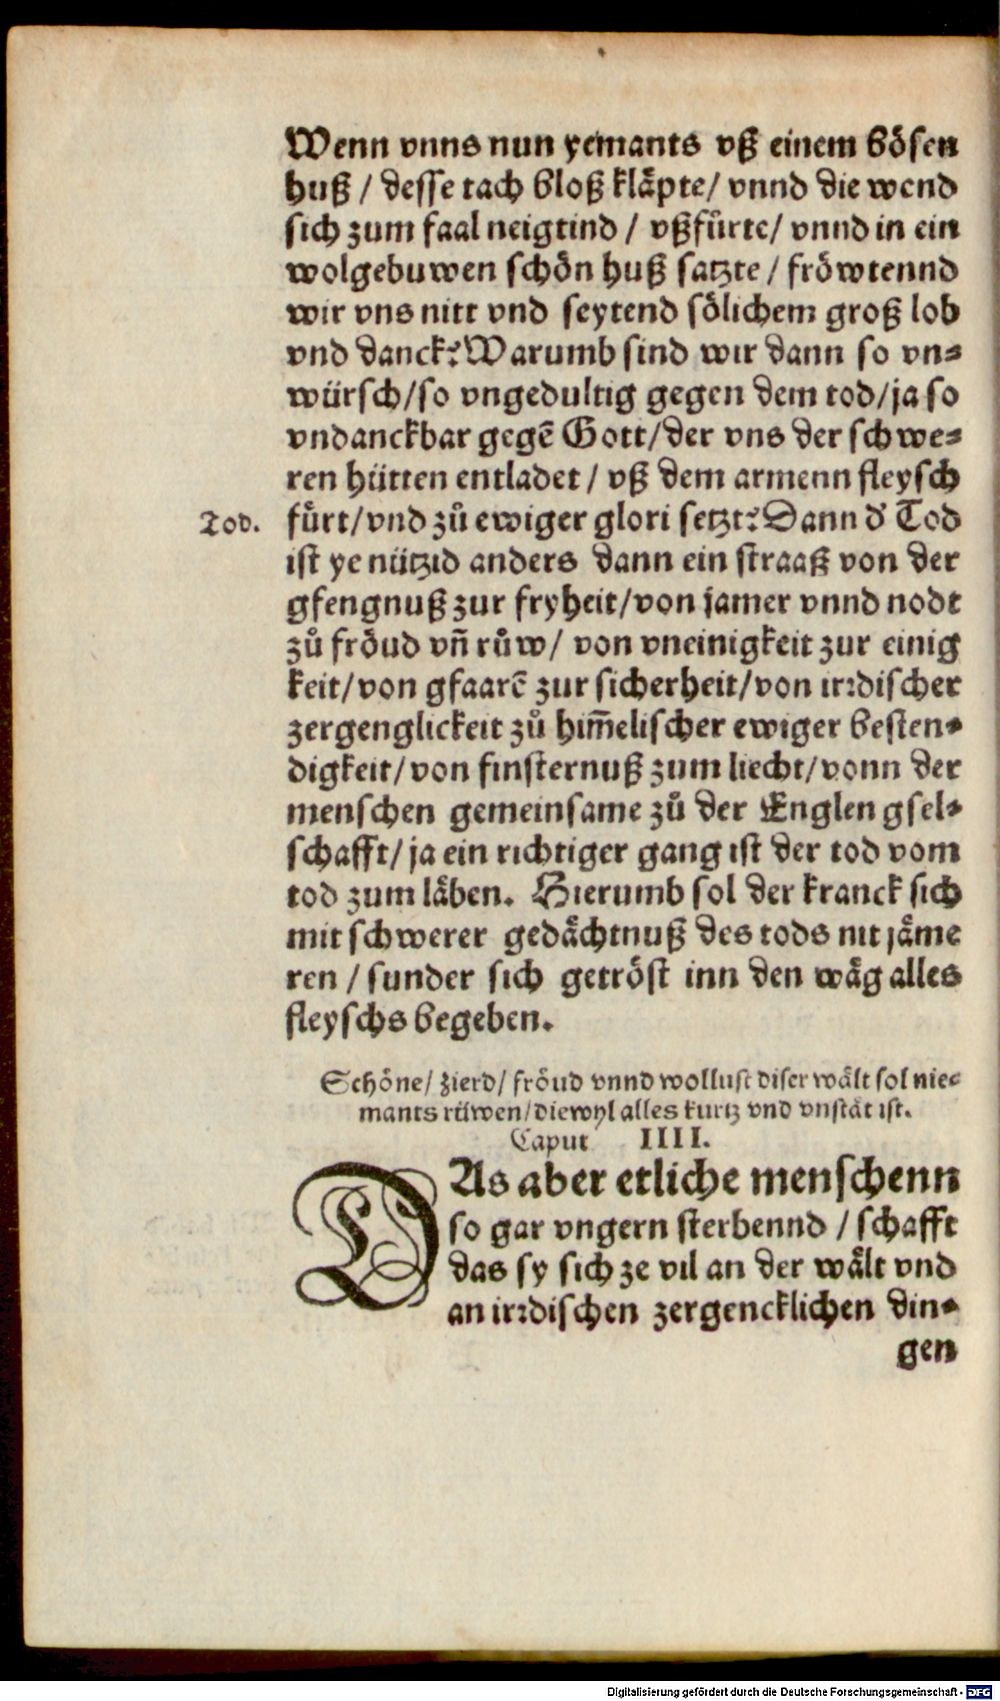 Wenn vnns nun yemants vß einem bösen
huß / desse tach bloß kläpte / vnnd die wend
sich zum faal neigtind / vßfůrte / vnnd in ein
wolgebuwen schön huß satzte / fröwtennd
wir vns nitt vnd seytend sölichem groß lob
vnd danck? Warumb sind wir dann so vn⸗
würsch / so vngedultig gegen dem tod / ja so
vndanckbar gegē Gott / der vns der schwe⸗
ren hütten entladet / vß dem armenn fleysch
Tod.
fůrt / vnd zů ewiger glori setzt? Dann d' Tod
ist ye nützid anders dann ein straaß von der
gfengnuß zur fryheit / von jamer vnnd nodt
zů fröud vn̄ růw / von vneinigkeit zur einig
keit / von gfaarē zur sicherheit / von irꝛdischer
zergenglickeit zů him̄elischer ewiger besten⸗
digkeit / von finsternuß zum liecht / vonn der
menschen gemeinsame zů der Englen gsel⸗
schafft / ja ein richtiger gang ist der tod vom
tod zum läben. Hierumb sol der kranck sich
mit schwerer gedächtnuß des tods nit jäme
ren / sunder sich getröst inn den wäg alles
fleyschs begeben.
Schöne / zierd / fröud vnnd wollust diser wält sol nie⸗
mants rüwen / diewyl alles kurtz vnd vnstät ist.
Caput IIII.
DAs aber etliche menschenn
so gar vngern sterbennd / schafft
das sy sich ze vil an der wält vnd
an irꝛdischen zergencklichen din⸗
gen
Digitalisierung gefördert durch die Deutsche Forschungsgemeinschaft - DFG